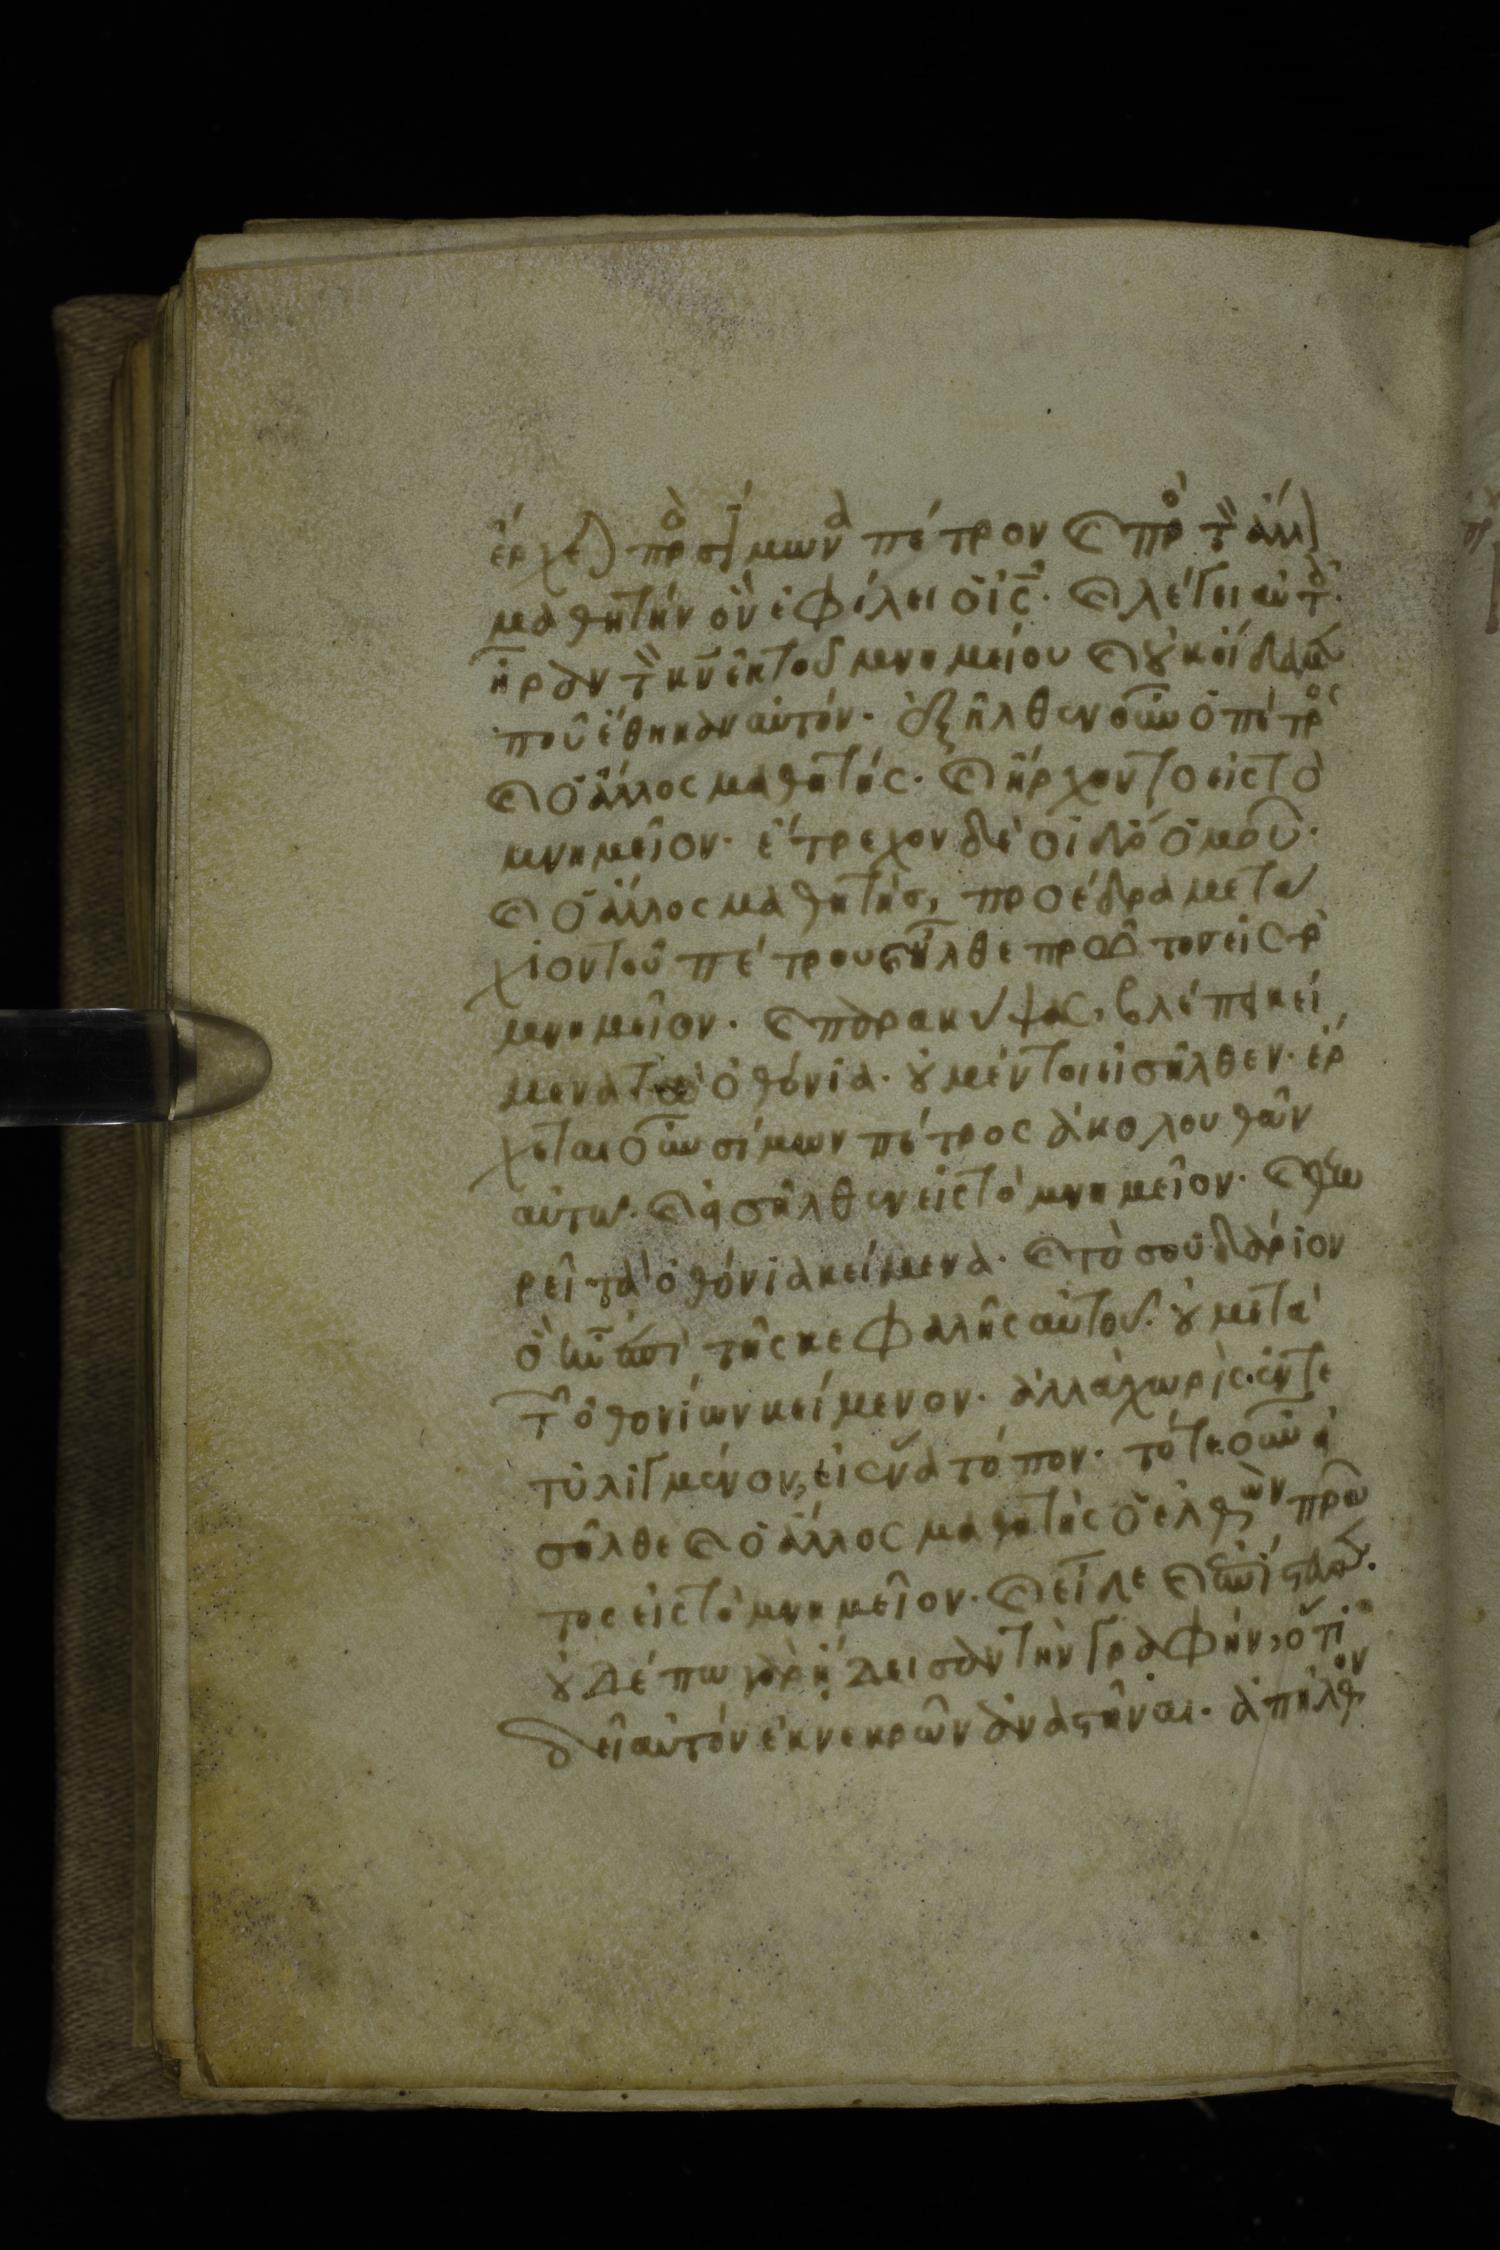 ἔρχε) πρ̀ο σίμωνα πέτρον (καὶ) πρὸ τ̏ ἄλλ)
μαθητὴν ὃν ἐφίλει ὁ ἰς̄. (καὶ) λέγει αὐτ.
ἦραν τ̏ κν̄ ἐκ τοῦ μνημείου (καὶ) οὐκ οἴδαμ
ποῦ ἔθηκαν αὐτόν. ἐξῆλθεν οὖν ὁ πέτρος
(καὶ) ὁ ἄλλος μαθητής. (καὶ) ἤρχοντο εἰς τὸ
μνημεῖον. ἔτρεχον δὲ οἱ δύο ὁμοῦ.
(καὶ) ὁ ἄλλος μαθητὴς, προέδραμε τα
χιον τοῦ πέτρου (καὶ) ἦλθε πρῶτον εἰς τὸ
μνημεῖον. (καὶ) παρακύψας, βλέπει κεί
μενα τὰ ὀθόνια. οὐ μέντοι εἰσῆλθεν. ἔρ
χεται οὖν σίμων πέτρος ἀκολουθῶν
αὐτῷ. (καὶ) εἰσῆλθεν εἰς τὸ μνημεῖον. (καὶ) θεω
ρεῖ τὰ ὀθόνια κείμενα. (καὶ) τὸ σουδάριον
ὃ ἦν ἐπὶ τῆς κεφαλῆς αὐτοῦ. οὐ μετὰ
τ̑ ὀθονίων κείμενον. ἀλλὰ χωρὶς ἐντε
τυλιγμένον, εἰς ἕνα τόπον. τότε οὖν εἰ
σῆλθε (καὶ) ὁ ἄλλος μαθητὴς ὁ ἐλθὼν πρῶ
τος εἰς τὸ μνημεῖον. (καὶ) εἶδε (καὶ) ἐπίστευσ.
οὐδέπω γὰρ ᾔδεισαν τὴν γραφήν, ὅτι
δεῖ αὐτὸν ἐκ νεκρῶν ἀναστῆναι. ἀπῆλθον